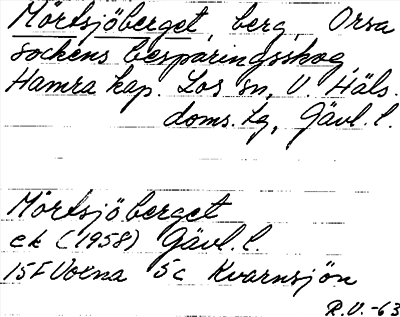 Mörtsjöberget, berg, Orsa
sockens besparingsskog,
Hamra kap. Los sn, V. Häls.
doms. lg, Gävl. l.
Mörtsjöberget
ek (1958) Gävl. l.
15F Voxna 5c Kvarnsjön
R.V. -63